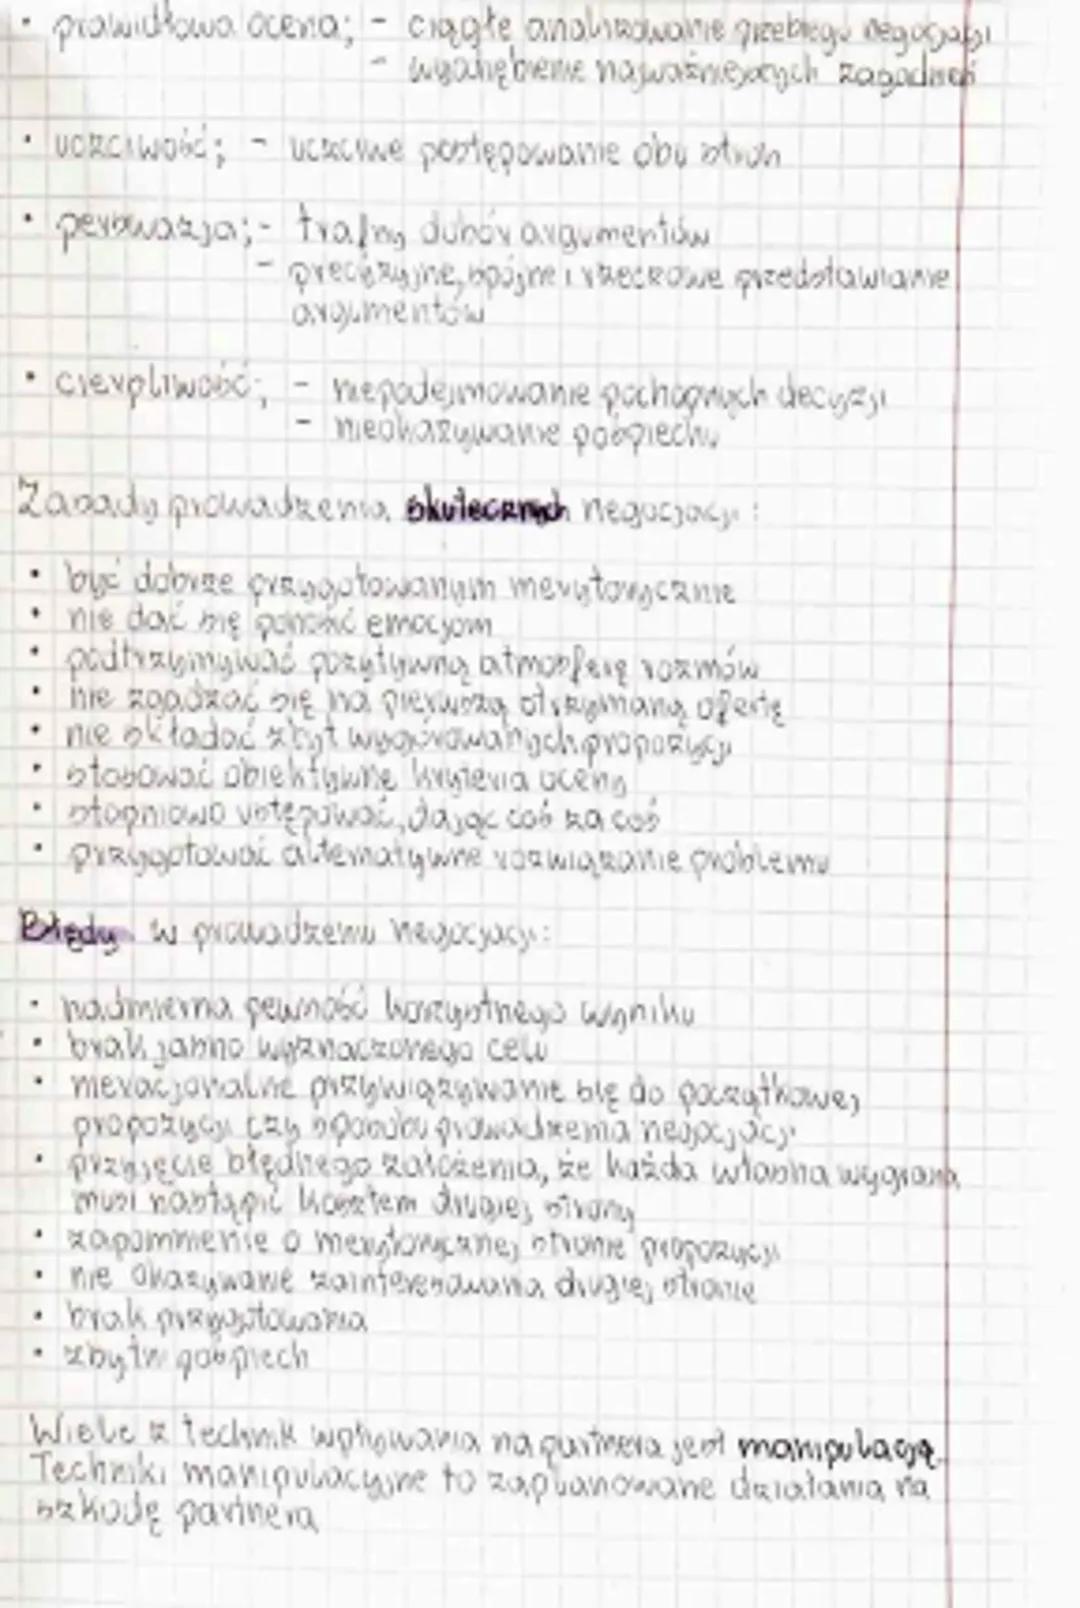 • prawidłowa ocena; - ciągłe analizowanie przebiegu negocjacji
- wyodrębienie najważniejszych zagadnień
• uczciwość; - uczciwe postępowanie obu stron
• perswazja; - trafny dobór argumentów
- precyzyjne, spójne i rzeczowe przedstawianie
argumentów
• cierpliwość; - niepodejmowanie pochopnych decyzji
- nieokazywanie pośpiechu
Zasady prowadzenia skutecznych negocjacji:
• być dobrze przygotowanym merytorycznie
• nie dać się ponosić emocjom
• podtrzymywać pozytywną atmosferę rozmów
• nie zgadzać się na pierwszą otrzymaną ofertę
• nie składać zbyt wygórowanych propozycji
• stosować obiektywne kryteria oceny
• stopniowo ustępować, dając coś za coś
• przygotować alternatywne rozwiązanie problemu
Błędy w prowadzeniu negocjacji:
• nadmierna pewność korzystnego wyniku
• brak jasno wyznaczonego celu
• nieracjonalne przywiązywanie się do początkowej
propozycji czy sposobu prowadzenia negocjacji
• przyjęcie błędnego założenia, że każda własna wygrana
musi nastąpić kosztem drugiej strony
• zapomnienie o merytorycznej stronie propozycji
• nie okazywanie zainteresowania drugiej stronie
• brak przygotowania
• zbytni pośpiech
Wiele z technik wpływania na partnera jest manipulacją.
Techniki manipulacyjne to zaplanowane działania na
szkodę partnera